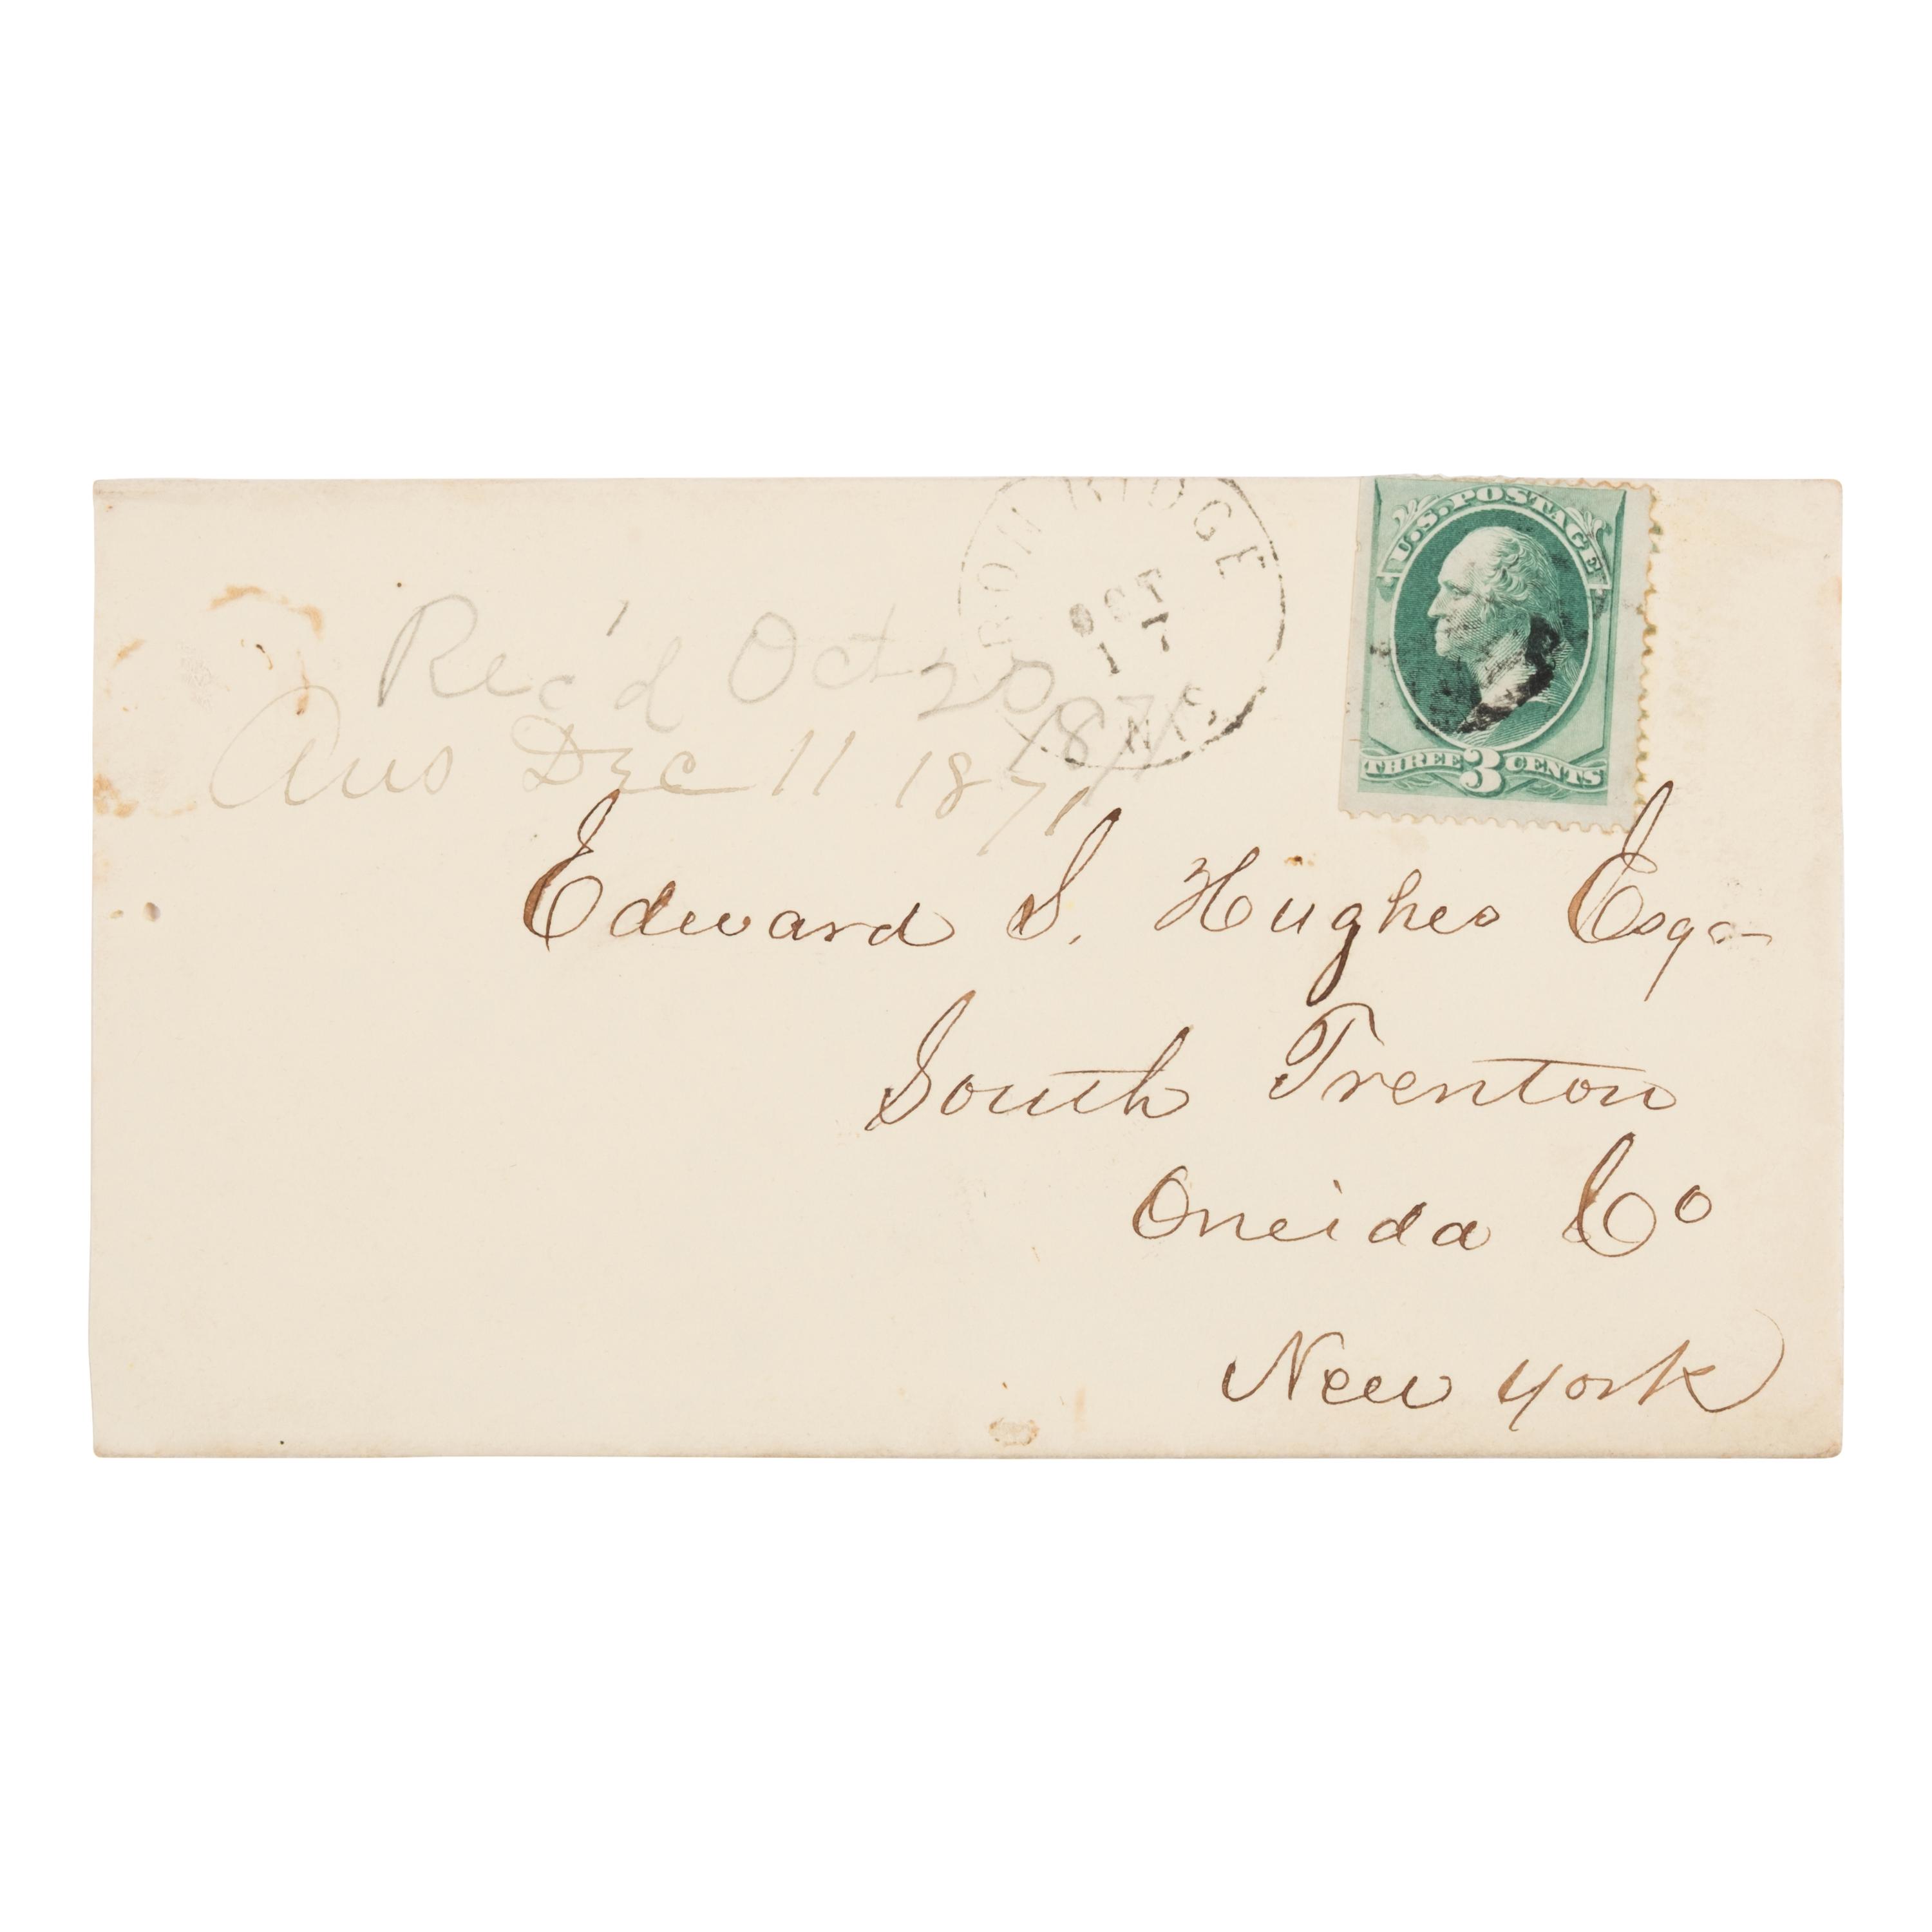 IRON RIDGE
OCT
17
WIS
U.S. POSTAGE
THREE 3 CENTS
Rec'd Oct 20 1871
Ans Dec 11 1871
Edward S. Hughes Esqr
South Trenton
Oneida Co
New York